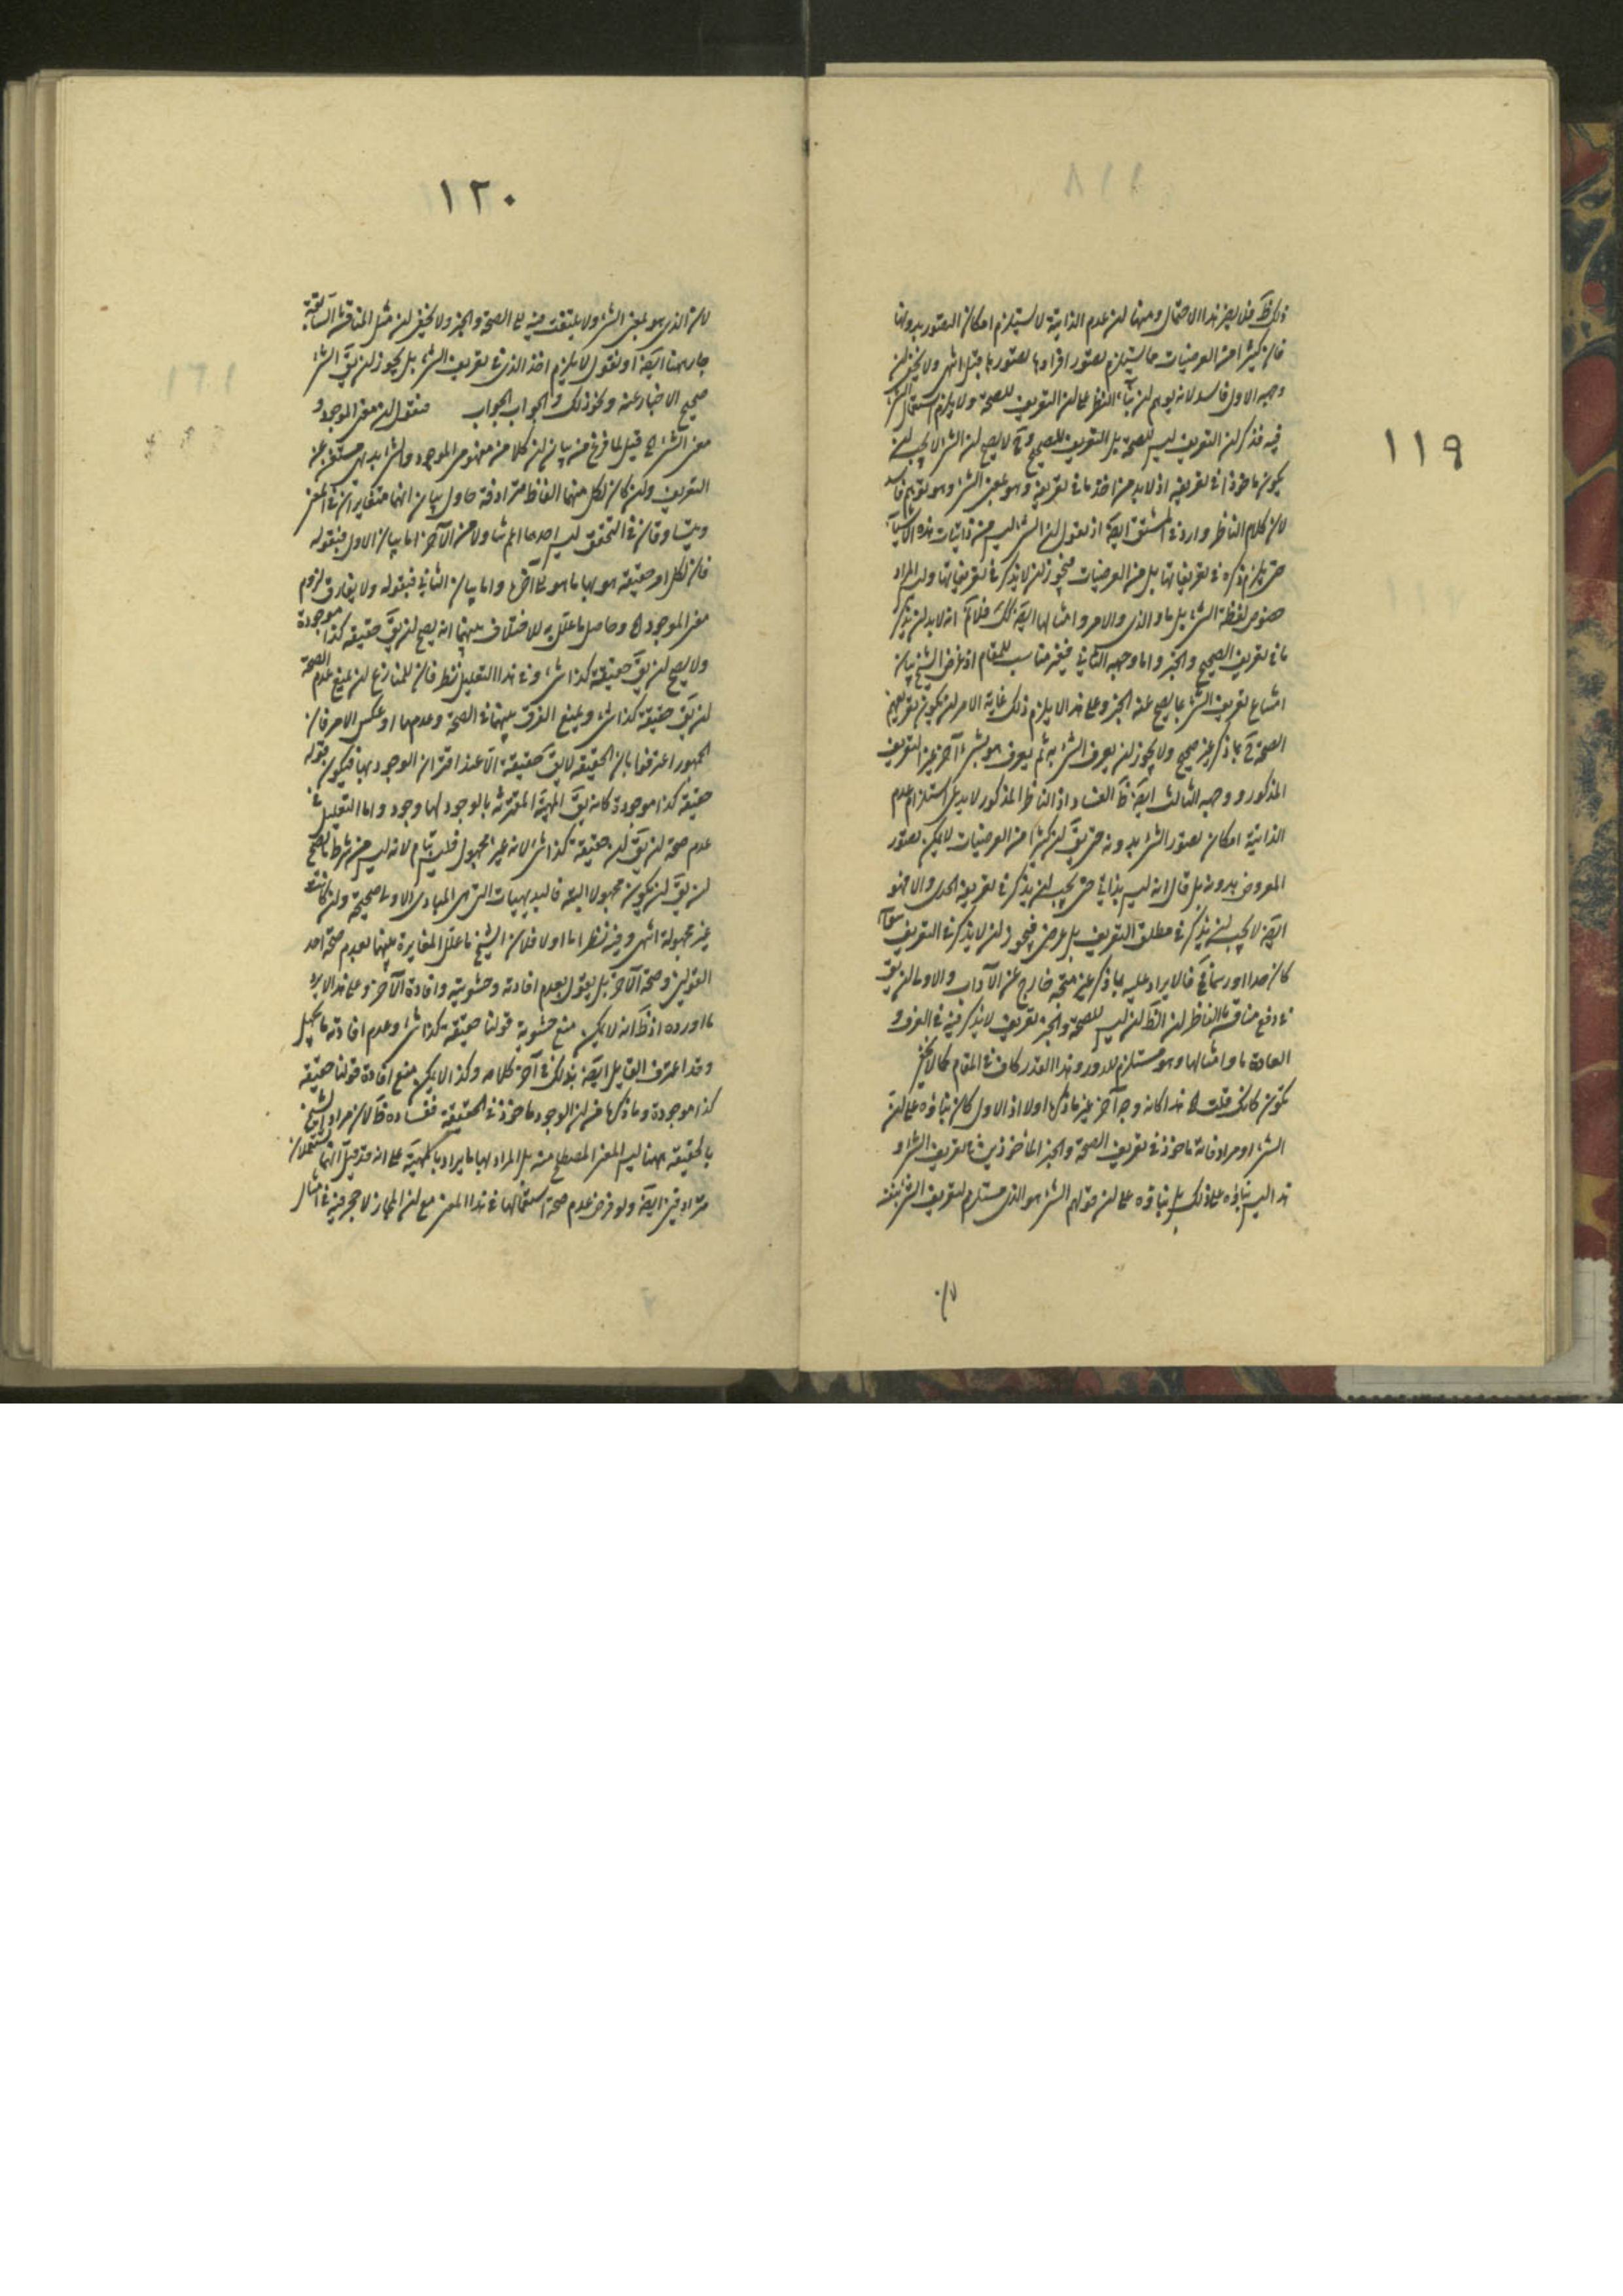 ١١٩
ذلك ظ فلا يضر هذا الاحتمال ومنها ان عدم الذاتية لا يستلزم امكان التصور بدونها
فان كثيرا من العرضيات مما يستلزم تصور افرادها تصورها قبل انتهى ولا يخفى ان
وجهه الاول فاسد لانه يوهم ان بناء النظر على ان التعريف للصحة ولا يلزم استعمال الشئ
فيه فذكر ان التعريف ليس للصحة بل التعريف للصحيح وح لا يصح ان الشئ لا يجب ان
يكون ماخوذا في تعريفه اذ لا بد من اخذ ما في تعريفه وهو بمعنى الشئ وهو توهم فاسد
لان كلام الناظر وارد في المشتق ايضا اذ نقول ان الشئ ليس من ذاتيات هذه الاشياء
حتى يلزم ذكره في تعريفاتها بل من العرضيات فيجوز ان لا يذكر في تعريفاتها وليس المراد
خصوص لفظة الشئ بل ما والذي والامر وامثالها ايضا كك فلا نم انه لا بد ان يذكر
ما في تعريف الصحيح والخبر واما وجهه الثاني فغير مناسب للمقام اذ غرض الشيخ بيان
امتناع تعريف الشئ بما يصح عنه الخبر وعلى هذا لا يلزم ذلك غاية الامر ان يكون تعريفهم
الصحة ح بما ذكر غير صحيح ولا يجوز ان يعرف الشئ به ثم يعرف هو بشئ آخر غير التعريف
المذكور ووجهه الثالث ايضا ظ الفساد اذ الناظر المذكور لا يدعى استلزام عدم
الذاتية امكان تصور الشئ بدونه حتى يق ان كثيرا من العرضيات لا يمكن تصور
المعروض بدونه بل قال انه ليس بذاتي حتى يجب ان يذكر في تعريفه الحدى والا فهو
ايضا لا يجب ان يذكر في مطلق التعريف بل عرضى فيجوز ان لا يذكر في التعريف سواء
كان حدا او رسما فح فالايراد عليه بما ذكر غير متجه خارج عن الآداب والاولى ان يق
في دفع مناقشة الناظر ان الظ ان ليس للصحة والخبر تعريف لا يذكر فيه في العرف و
العادة ما وامثالها وهو مستلزم للدور وهذا القدر كاف في المقام كما لا يخفى
تكون كانك قلت اه هذا كانه وجه آخر غير ما ذكرها اولا اذ الاول كان بناؤه على ان
الشئ او مرادفاته ماخوذ في تعريف الصحة والخبر الماخوذين في تعريف الشئ و
هذا ليس بناؤه على ذلك بل بناؤه على ان قولهم الشئ هو الذي مستلزم لتعريف الشئ بنفسه
لان
١٢٠
لان الذي هو بمعنى الشئ ولا يلتفت فيه الى الصحة والخبر ولا يخفى ان مثل المناقشة السابقة
جار ههنا ايضا او نقول لا يلزم اخذ الذي في تعريف الشئ بل يجوز ان يق الشئ
صحيح الاخبار عنه ونحو ذلك والجواب الجواب فنقول ان معنى الموجود و
معنى الشئ اه قيل لما فرغ من بيان ان كلا من مفهومى الموجود والشئ بديهى مستغن عن
التعريف وان كان لكل منهما الفاظ مترادفة حاول بيان انهما متغايران في المعنى
ويتساوقان في التحقق ليس احدهما اعم تناولا من الآخر اما بيان الاول فبقوله
فان لكل امر حقيقة هو بها ما هو الى آخرها واما بيان الثاني فبقوله ولا يفارق لزوم
معنى الموجود اه وحاصل ما علل به للاختلاف بينهما انه يصح ان يق حقيقة كذا موجودة
ولا يصح ان يق حقيقة كذا شئ وفي هذا التعليل نظر فان للمنازع ان يمنع عدم الصحة
ان يق حقيقة كذا شئ ويمنع الفرق بينهما في الصحة وعدمها او عكس الامر فان
الجمهور اعترفوا بان الحقيقة لا يق حقيقة الا عند اقتران الوجود بها فيكون قوله
حقيقة كذا موجودة كانه يق المهية المقترنة بالوجود لها وجود واما التعليل في
عدم صحة ان يق ان حقيقة كذا شئ لانه غير مجهول فليس بتام لانه ليس من شرط ما يصح
ان يق ان يكون مجهولا البتة فالبديهيات التى هى المبادى الاولى صحيحة وان كانت
غير مجهولة انتهى وفيه نظر اما اولا فلان الشيخ ما علل المغايرة بينهما بعدم صحة احد
القولين وصحة الآخر بل يقول بعدم افادته وحشويته وافادة الآخر وعلى هذا لا يرد
ما اورده اذ ظ انه لا يمكن منع حشوية قولنا حقيقة كذا شئ وعدم افادته ما يجهل
وقد اعترف القايل ايضا بذلك في آخر كلامه وكذا لا يمكن منع افادة قولنا حقيقة
كذا موجودة وما ذكرها من ان الوجود ماخوذ في الحقيقة ففساده ظ لان مراد الشيخ
بالحقيقة ههنا ليس المعنى المصطلح عنه بل المراد بها ما يراد بالمهية على انه قد قيل انهما يستعملان
مترادفين ايضا ولو فرض عدم صحة استعمالها في هذا المعنى مع ان المجاز لا حجر فيه في امثال